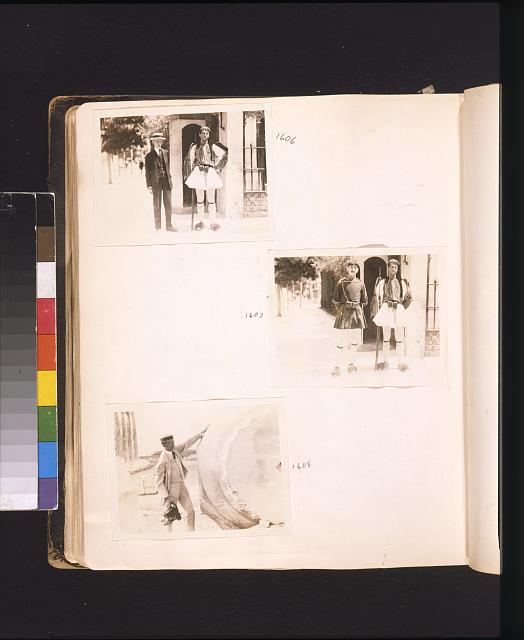 1606
1607
1608